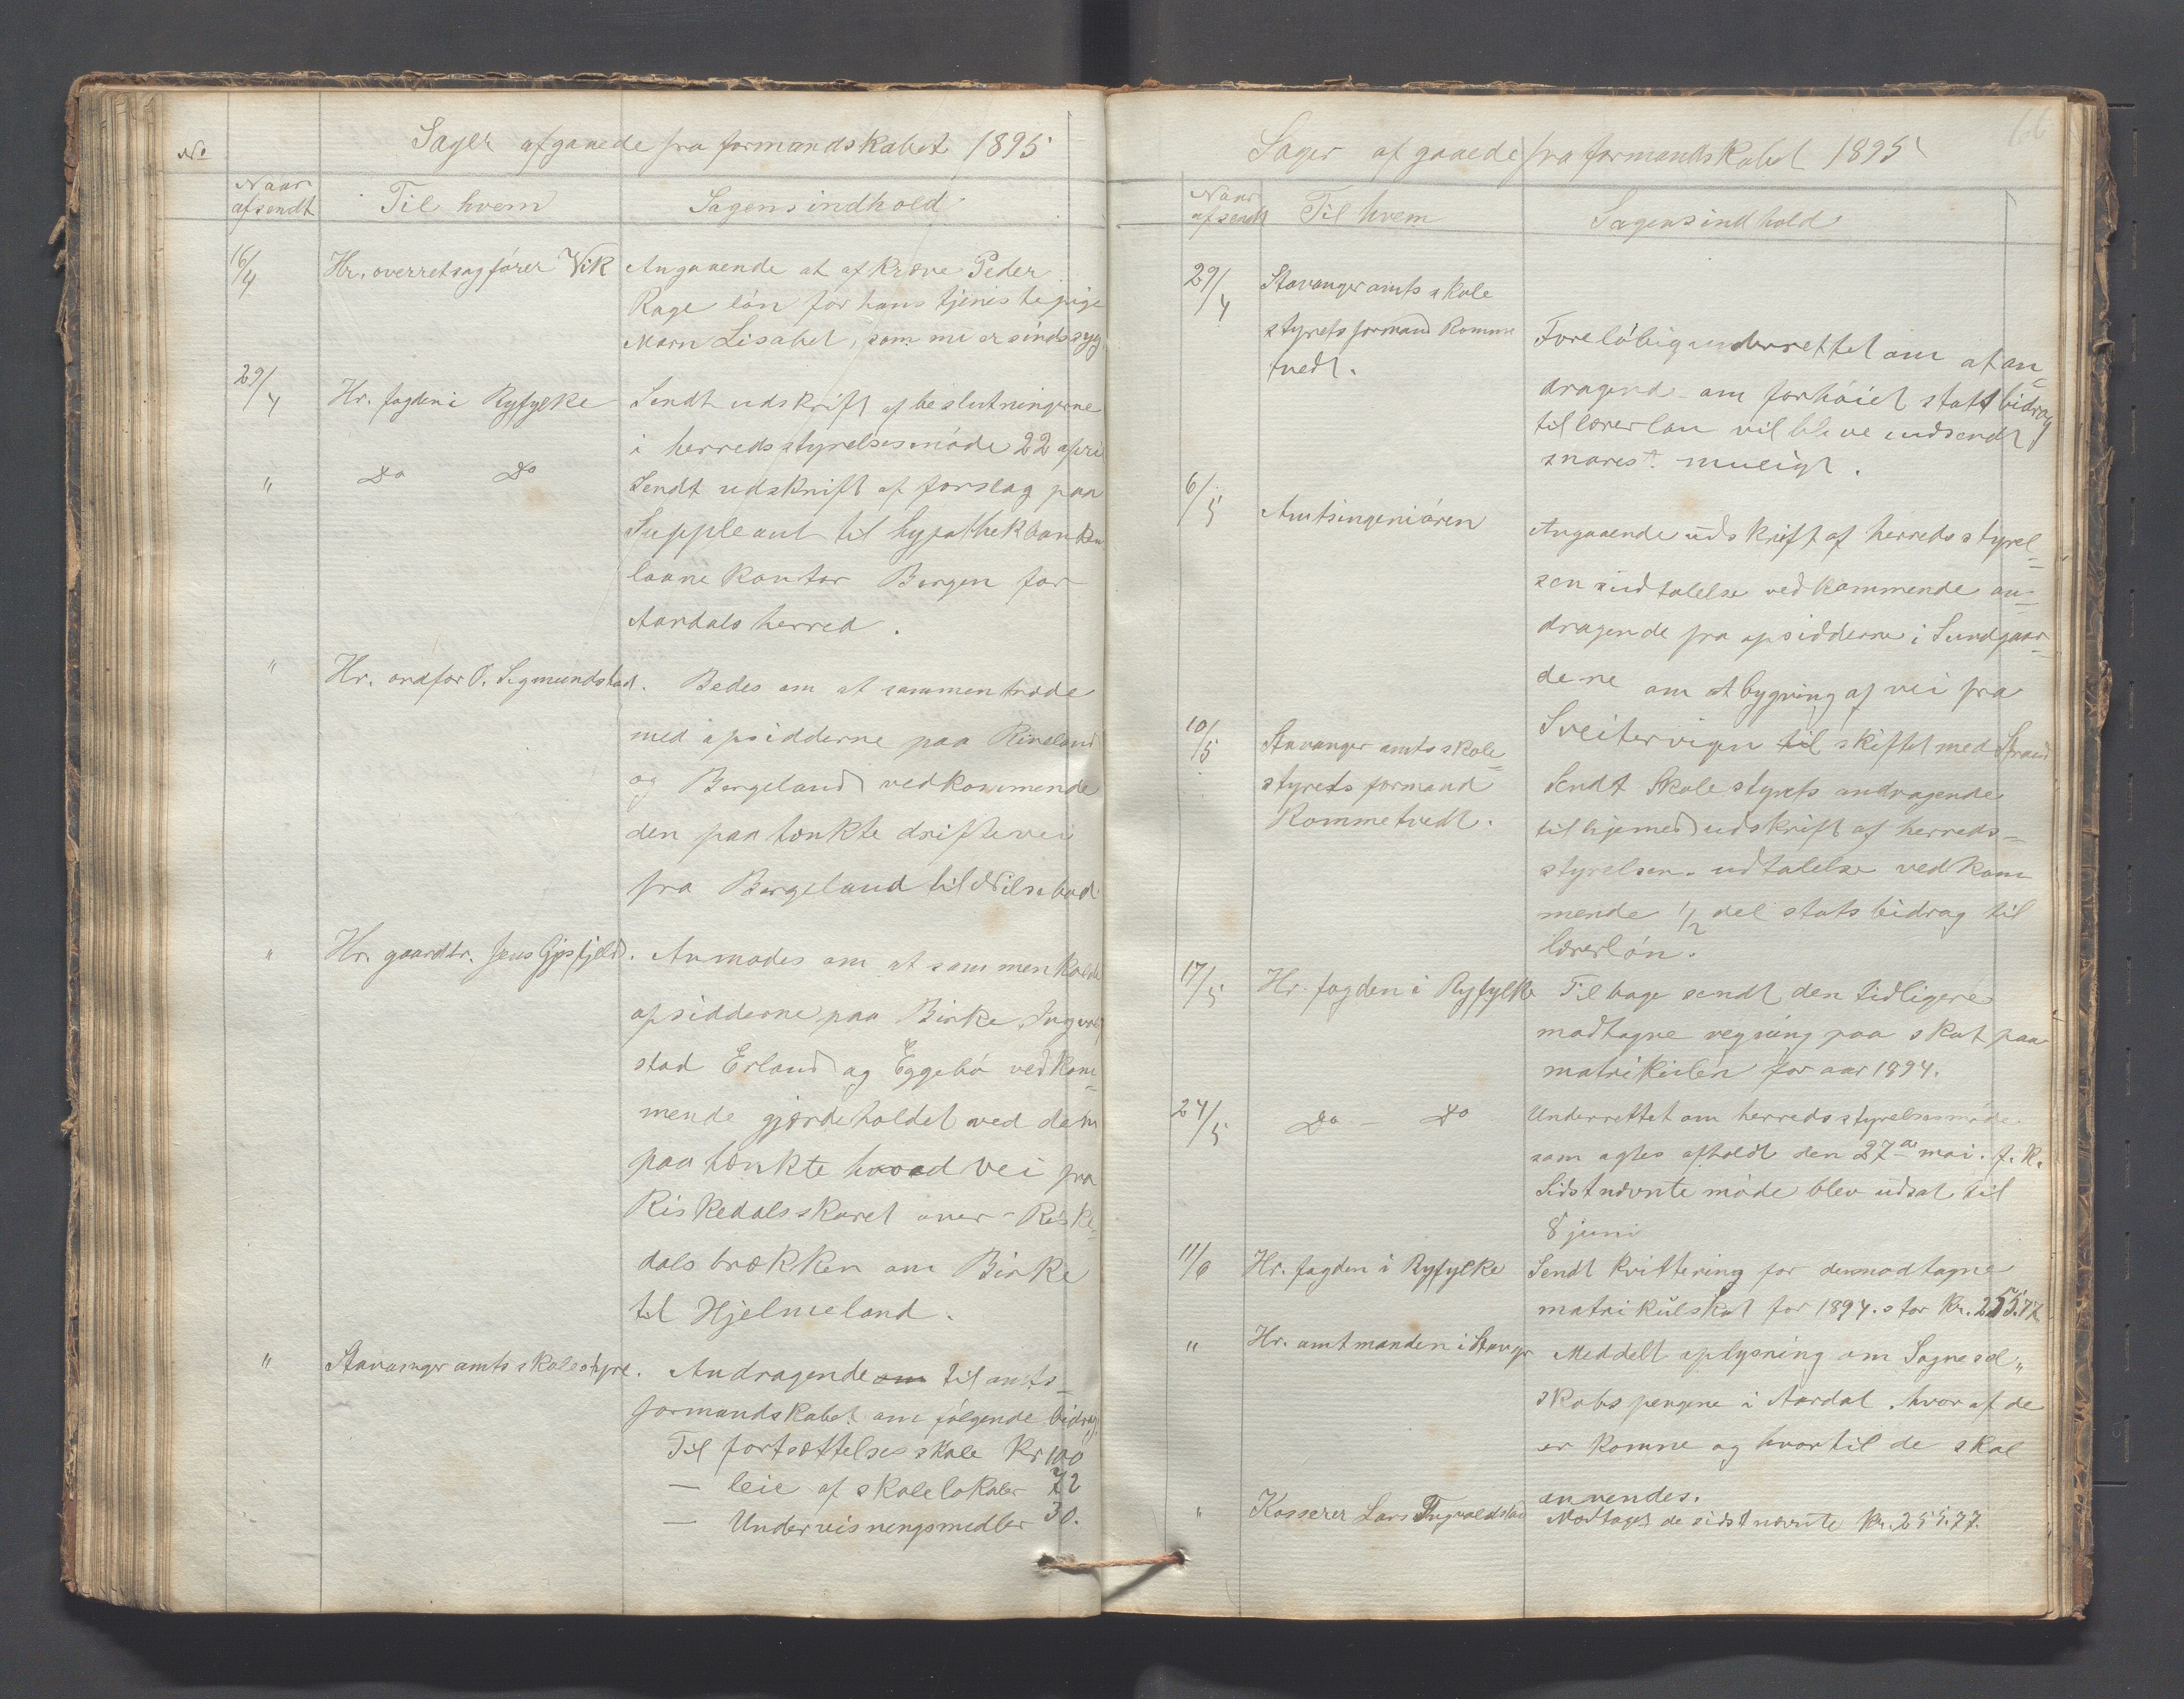 Sager afgaaede fra formandskabet 1895
No
Naar afsendt
Til hvem
Sagens indhold
16/4 Hr. overretsagfører Vik Angaaende at afkræve Peder
Rage løn for hans tjenistepige
Marn Lisabet, som nu er sindssyg
29/4 Hr. fogden i Ryfylke Sendt udskrift af beslutningerne
i herredsstyrelsesmøde 22 apri
" Do Do Sendt udskrift af forslag paa
Suppleant til hypothekbanken
laane kontor Bergen for
Aardals herred.
" Hr. ordfør O. Sigmundstad. Bedes om at sammentræde
med opsidderne paa Riveland
og Bergeland vedkommende
den paatænkte driftevei
fra Bergeland til Nilsebud
" Hr. gaardbr. Jens Gjisfjeld. Anmodes om at sammenkalde
opsidderne paa Birke, Ingvald
stad Erland og Eggebø vedkom-
mende gjærdeholdet ved dem
paatænkte hoved vei fra
Riskedalsskaret over Riske-
dalsbrækken om Birke
til Hjelmeland.
" Stavanger amts skolestyre. Andragende om til amts-
formandskabet om følgende bidrag.
Til fortsættelses skole Kr 100
— leie af skolelokaler 72
— Undervisningsmidler 30.
66
Sager afgaaede fra formandskabet 1895
Naar afsendt
Til hvem
Sagens indhold
29/4 Stavanger amts skole
styrets formand Komme
tvedt.
Foreløbig underrettet om at an-
dragend om forhøiet statsbidrag
til lærerløn vil blive indsendt
snarest muligt.
6/5 Amtsingeniøren
Angaaende udskrift af herredsstyrel-
sens udtalelse vedkommende an-
dragende fra opsidderne i Sundgaar-
dene om at bygning af vei fra
Sveitervigen til skiftet med Strand
10/5 Stavanger amts skole-
styrets formand
Kommetvedt.
Sendt Skolestyrets andragende
tilligemed udskrift af herreds-
styrelsen. udtalelse vedkom
mende 1/2 del statsbidrag til
lærerløn.
17/5 Hr. fogden i Ryfylke Tilbage sendt den tidligere
modtagne regning paa skat paa
matrikulen for aar 1894.
24/5 Do - Do Underrettet om herredsstyrelsesmøde
som agtes afholdt den 27de mai. f. k.
Sidstnævnte møde blev udsat til
8 juni
11/6 Hr. fogden i Ryfylke Sendt kvittering for den modtagne
matrikulskat for 1894. stor Kr. 255.77
" Hr. amtmanden i Stavgr Meddelt oplysning om Sognesel„
skabs pengene i Aardal. hvoraf de
er komne og hvortil de skal
anvendes.
" Kasserer Lars Ingvaldstad Modtaget de sidstnævnte Kr. 255.77.